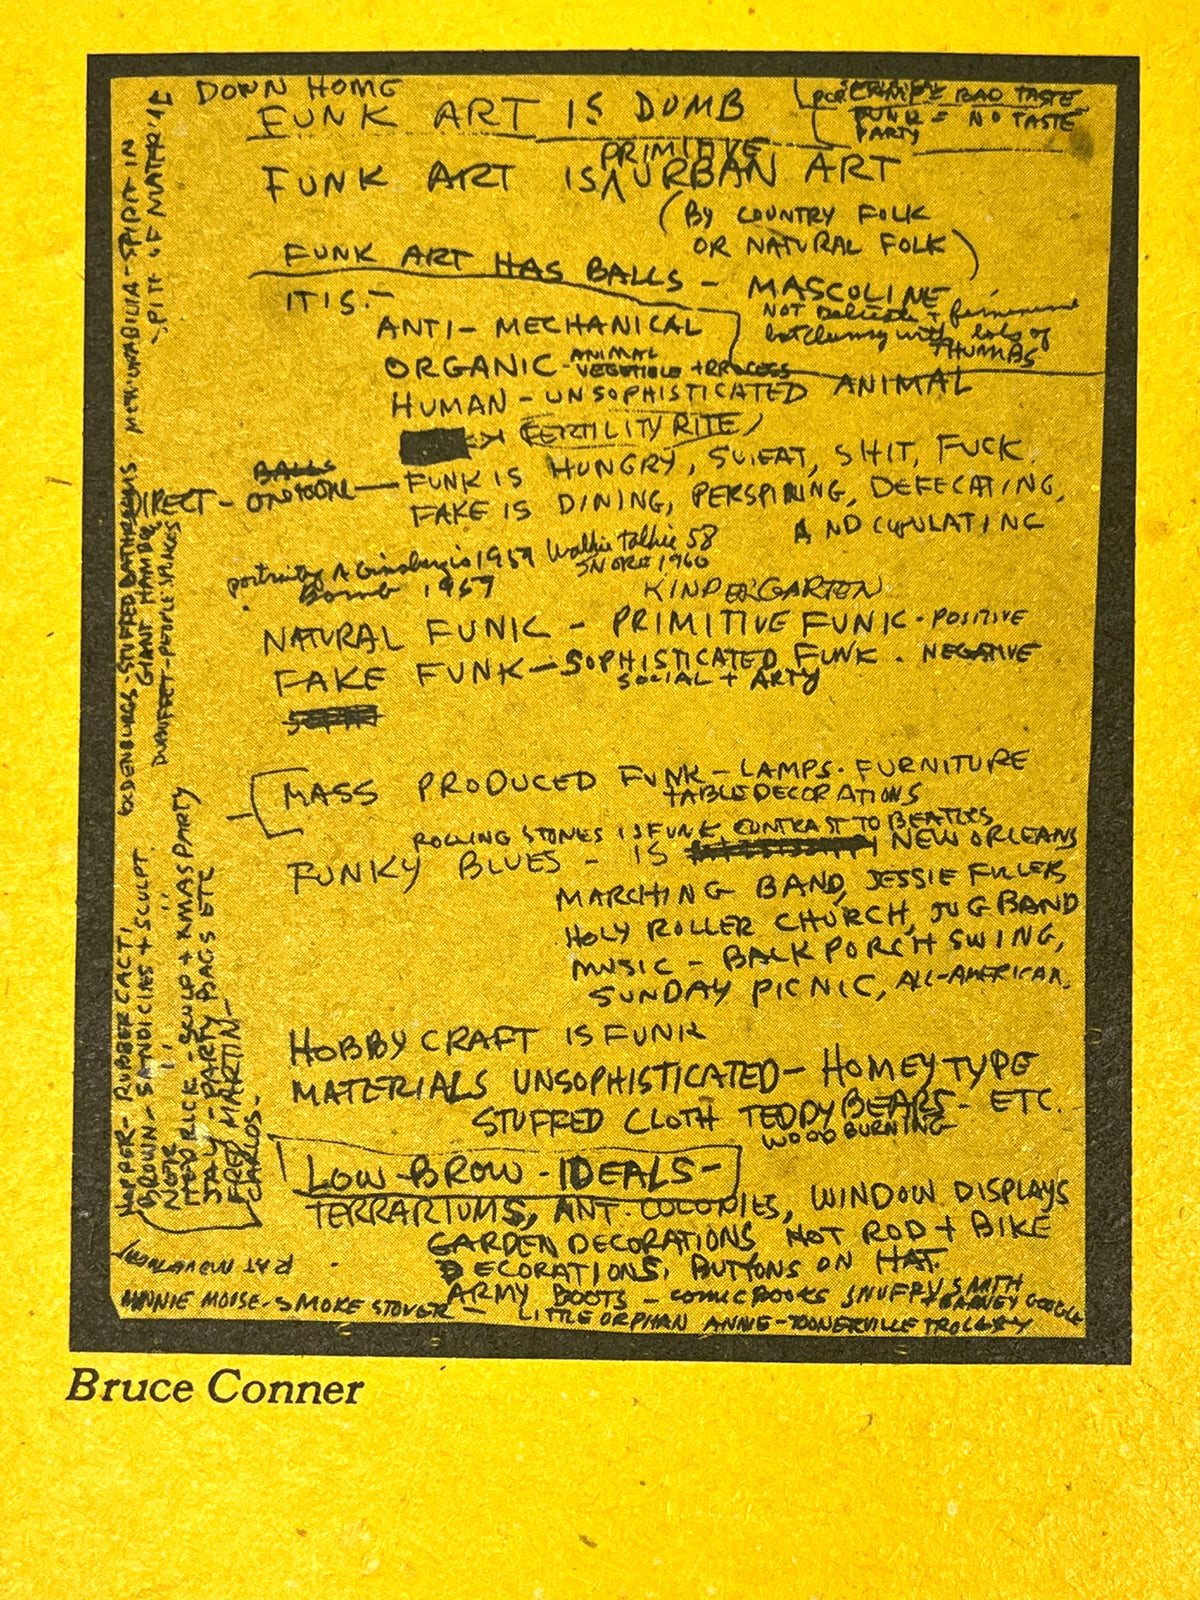 DOWN HOME
FUNK ART IS DUMB
BAD TASTE
FUNK = NO TASTE
PARTY
PRIMITIVE
FUNK ART IS ^ URBAN ART
(BY COUNTRY FOLK
OR NATURAL FOLK)
FUNK ART HAS BALLS - MASCOLINE
NOT Delicate + feminine
but clumsy with lots of
THUMBS
IT IS -
ANTI - MECHANICAL
ORGANIC - ANIMAL
VEGETIBLE + PROCESS
HUMAN - UNSOPHISTICATED ANIMAL
FERTILITY RITE
BALLS
DIRECT - FUNK IS HUNGRY, SWEAT, SHIT, FUCK.
FAKE IS DINING, PERSPIRING, DEFECATING,
AND COPULATING
portrait of A Ginsberg is 1959 Walkie talkie 58
Bomb 1957 SNORE 1960
KINDERGARTEN
NATURAL FUNK - PRIMITIVE FUNK - POSITIVE
FAKE FUNK - SOPHISTICATED FUNK . NEGATIVE
SOCIAL + ARTY
MASS PRODUCED FUNK - LAMPS. FURNITURE
TABLE DECORATIONS
ROLLING STONES IS FUNK CONTRAST TO BEATLES
FUNKY BLUES - IS NEW ORLEANS
MARCHING BAND, JESSIE FULLER
HOLY ROLLER CHURCH, JUG BAND
MUSIC - BACK PORCH SWING,
SUNDAY PICNIC, ALL-AMERICAN,
HOBBY CRAFT IS FUNK
MATERIALS UNSOPHISTICATED - HOMEY TYPE
STUFFED CLOTH TEDDY BEARS - ETC.
WOOD BURNING
LOW-BROW - IDEALS -
TERRARIUMS, ANT-COLONIES, WINDOW DISPLAYS
GARDEN DECORATIONS HOT ROD + BIKE
DECORATIONS, BUTTONS ON HAT.
ARMY BOOTS - COMIC BOOKS SNUFFY SMITH
+ BARNEY GOOGLE
MINNIE MOISE - SMOKE STOVER - LITTLE ORPHAN ANNIE - TOONERVILLE TROLLEY
RAT MOVEMENT
MEMORABILIA - SPIRIT IN
SPITE OF MATERIAL
OLDENBURGS - STUFFED BATHROOMS
GIANT HAMBG
DUBUFFET - PEOPLE SPACES
RUBBER CACTI
BROWN - SANDICIES + SCULPT.
NOFR
TED RICK - SCULP + XMAS PARTY
JAY - PARTY BAGS ETC
FRED MARTIN -
CARLOS -
Bruce Conner